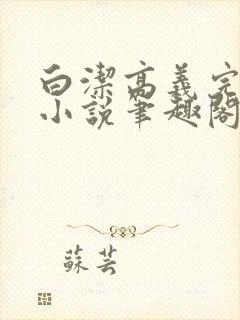 白潔高義完
小説筆趣閣
蘇芸